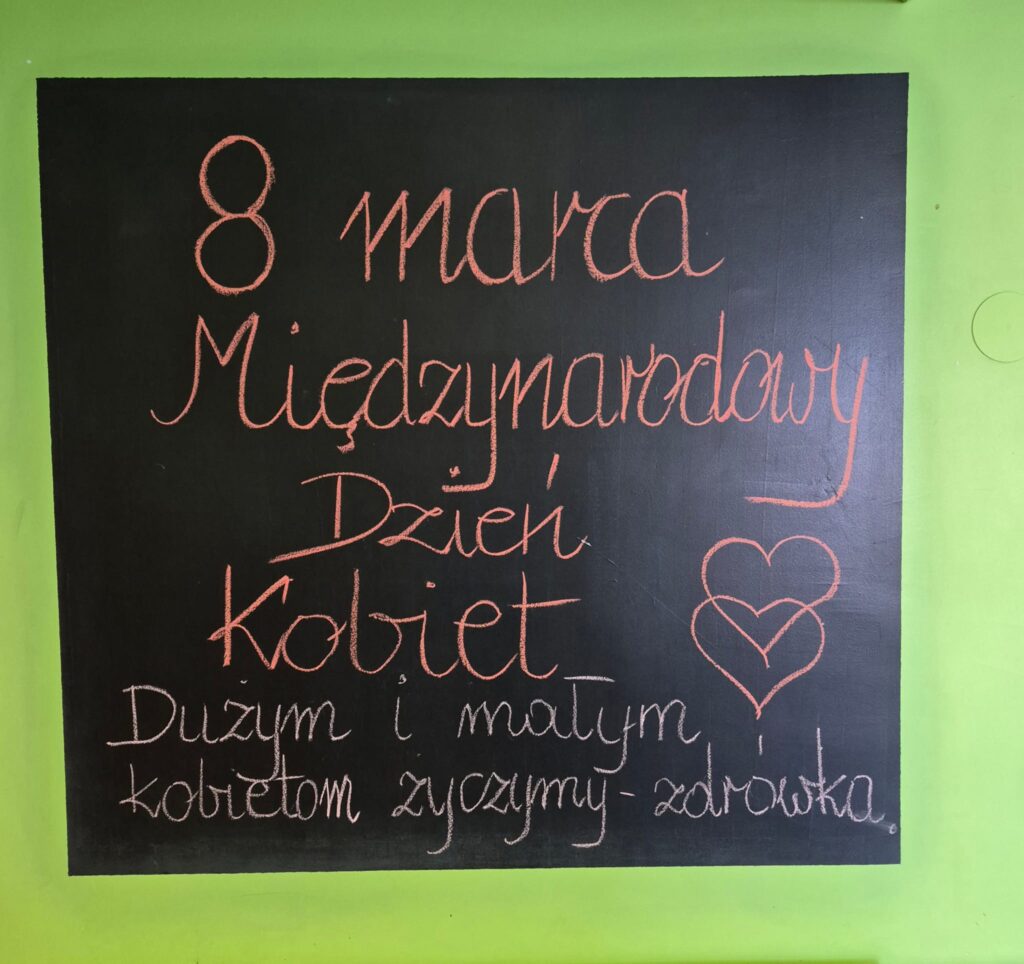 8 marca
Międzynarodowy
Dzień
Kobiet
Dużym i małym
kobietom życzymy - zdrówka.